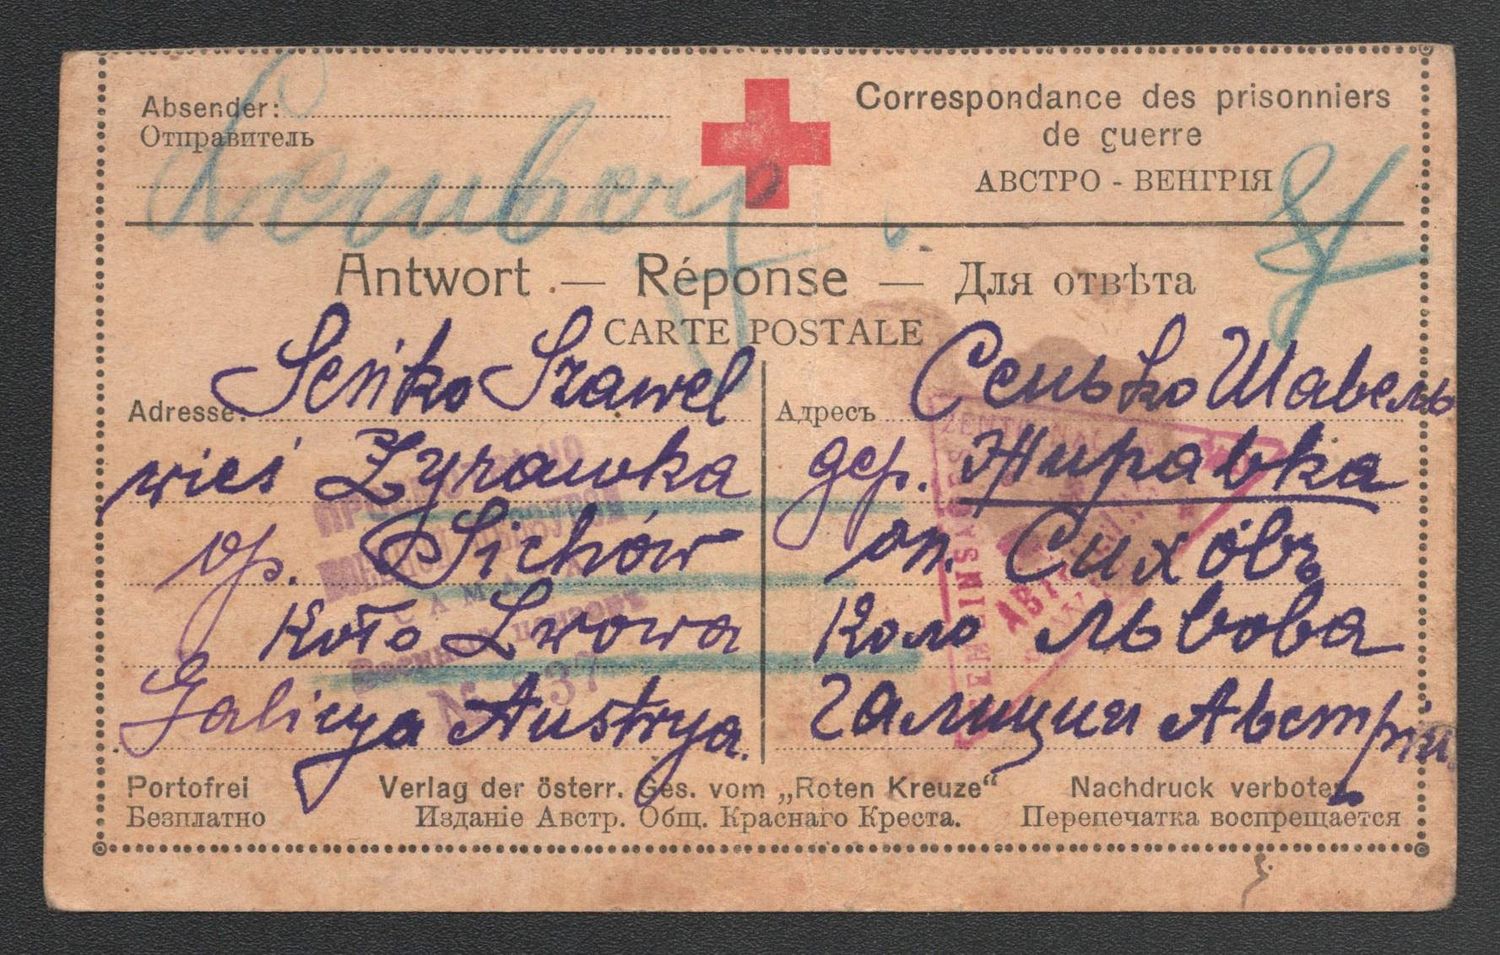 Absender:
Отправитель
Correspondance des prisonniers
de guerre
АВСТРО - ВЕНГРІЯ
Lemberg
Antwort — Réponse — Для отвѣта
CARTE POSTALE
Adresse:
Seńko Szawel
wieś Żyrawka
op. Sichów
Koło Lwowa
Galicya Austrya.
Адресъ
Сенько Шавель
дер. Жиравка
оп. Сихôвъ
Коло Львова
Галиции Австріи
Военных
№ 37
Portofrei
Безплатно
Verlag der österr. Ges. vom „Roten Kreuze“
Изданіе Австр. Общ. Краснаго Креста.
Nachdruck verboten
Перепечатка воспрещается